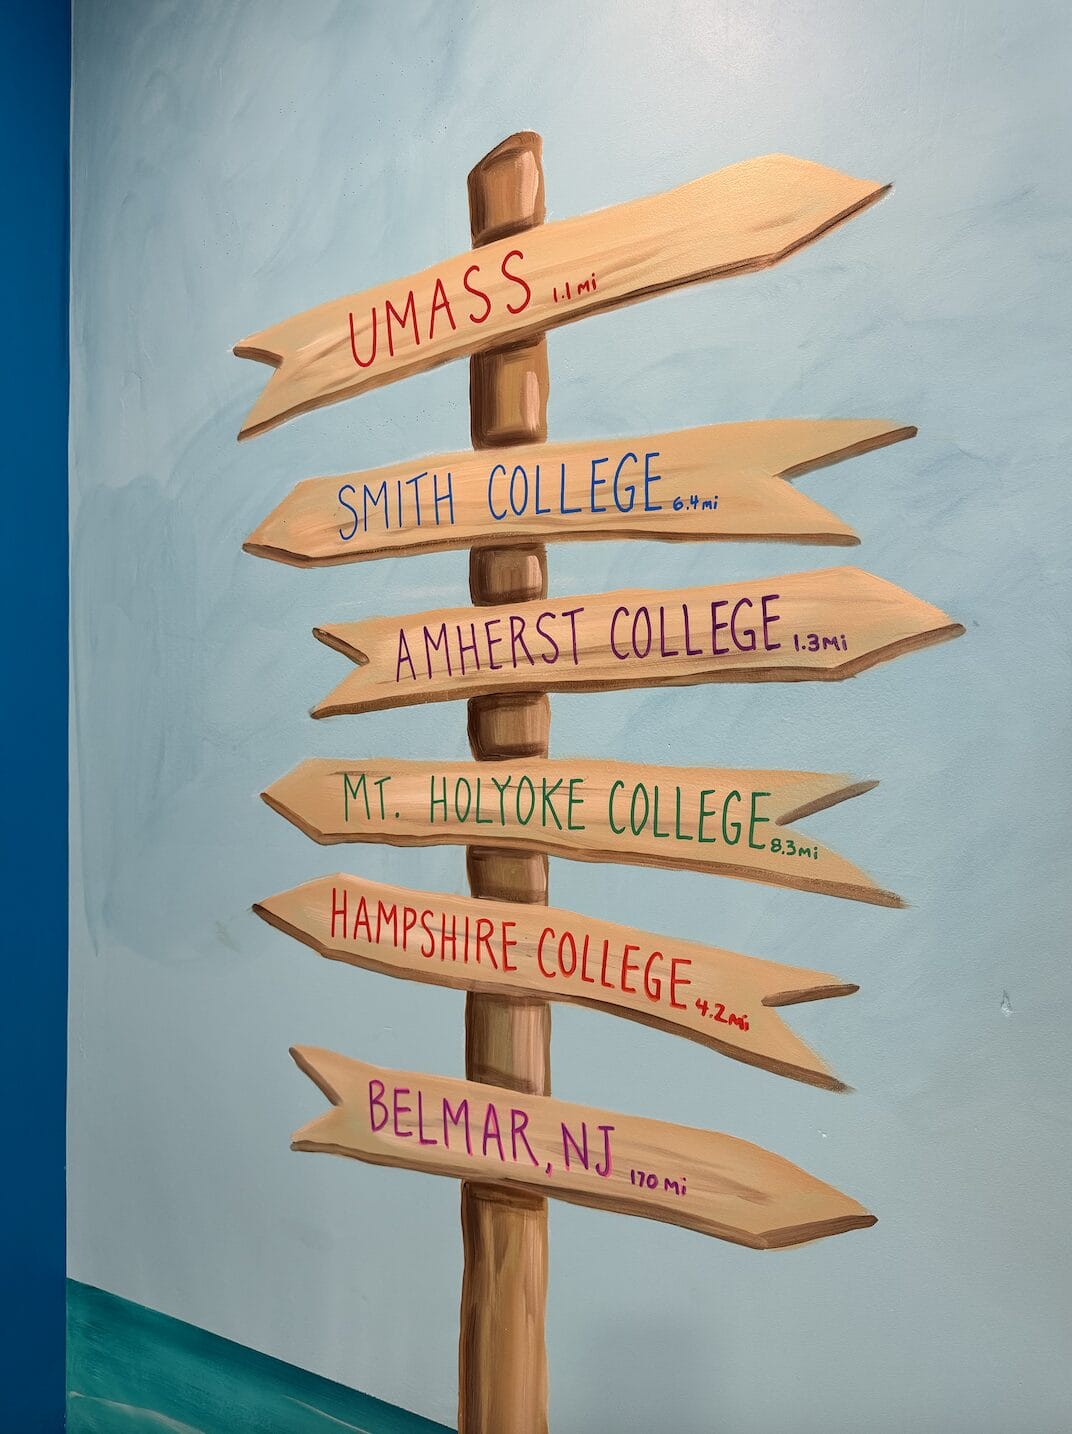 UMASS 1.1 mi
SMITH COLLEGE 6.4 mi
AMHERST COLLEGE 1.3 Mi
MT. HOLYOKE COLLEGE 8.3 mi
HAMPSHIRE COLLEGE 4.2 mi
BELMAR, NJ 170 Mi